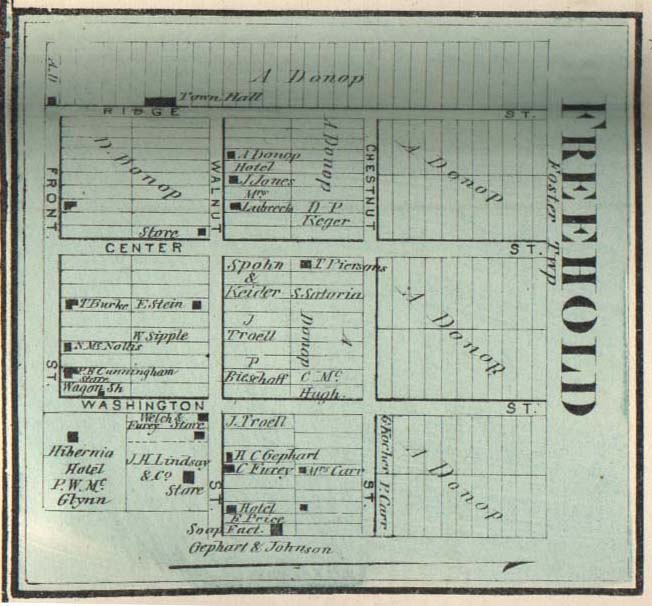 A Donop
Town Hall
RIDGE ST.
D. Donop
A Donop
Hotel
J. Jones
Mrs
Lubreck
A Donop
D P
Keger
A Donop
Store
FRONT ST.
WALNUT ST.
CHESTNUT ST.
CENTER ST.
Spohn
&
Keider
T. Piersons
S. Satoria
T. Burke
E. Stein
J
Troell
A Donop
A Donop
W. Sipple
N. Mc Nollis
P. B. Cunningham
Store
Wagon Sh
P
Bieschoff
C Mc
Hugh
WASHINGTON ST.
Welch &
Furey Store
J. Troell
Hibernia
Hotel
P. W. Mc
Glynn
J. H. Lindsay
& Co
Store
H C Gephart
C Furey
Mrs Carr
P. Carr
A Donop
Hotel
E Price
Soap Fact.
Gephart & Johnson
FREEHOLD
Foster Twp